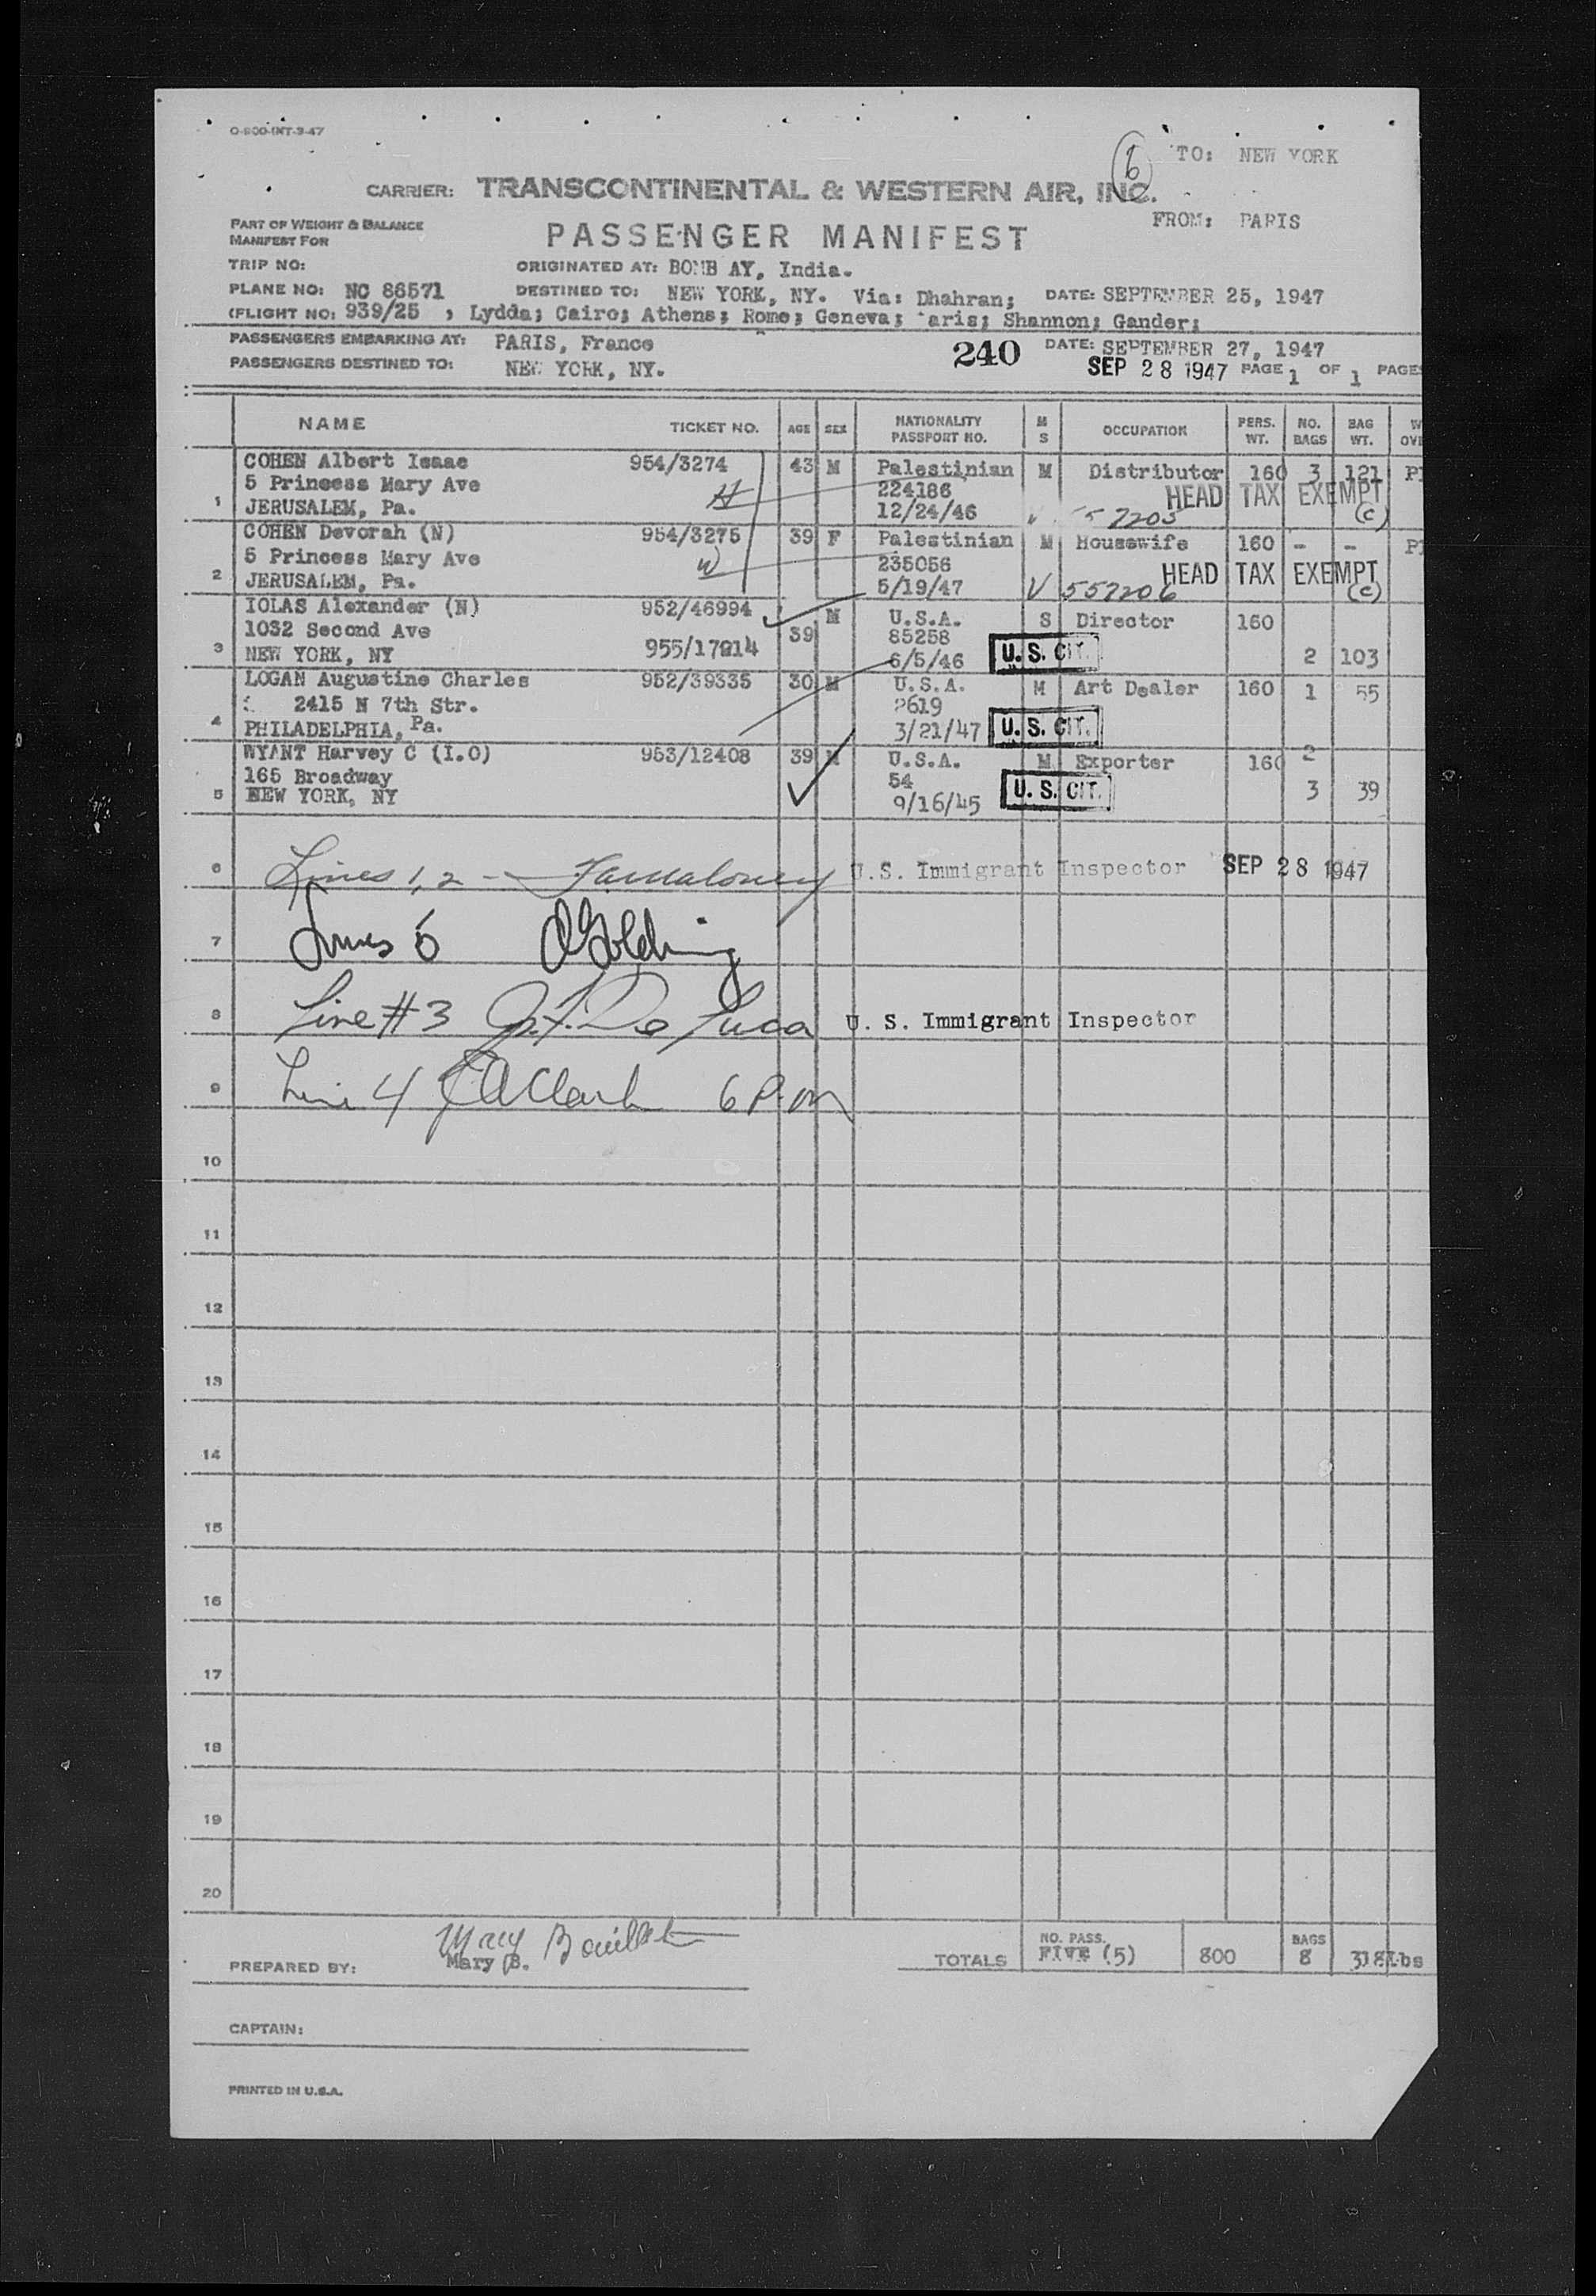 O-800-INT-3-47
6
TO: NEW YORK
CARRIER: TRANSCONTINENTAL & WESTERN AIR, INC.
FROM: PARIS
PART OF WEIGHT & BALANCE
MANIFEST FOR
PASSENGER MANIFEST
TRIP NO:
ORIGINATED AT: BOMB AY, India.
PLANE NO: NC 86571 DESTINED TO: NEW YORK, NY. Via: Dhahran; DATE: SEPTEMBER 25, 1947
(FLIGHT NO: 939/25 , Lydda; Cairo; Athens; Rome; Geneva; aris; Shannon; Gander;
PASSENGERS EMBARKING AT: PARIS, France 240 DATE: SEPTEMBER 27, 1947
PASSENGERS DESTINED TO: NEW YORK, NY. SEP 28 1947 PAGE 1 OF 1 PAGES
NAME TICKET NO. AGE SEX NATIONALITY PASSPORT NO. M S OCCUPATION PERS. WT. NO. BAGS BAG WT. W OV
COHEN Albert Isaac 954/3274 43 M Palestinian M Distributor 160 3 121 P
5 Princess Mary Ave H 224186 HEAD TAX EXEMPT
1 JERUSALEM, Pa. 12/24/46 (c)
COHEN Devorah (N) 954/3275 39 F Palestinian M Housewife 160 - - P
5 Princess Mary Ave W 235056 HEAD TAX EXEMPT
2 JERUSALEM, Pa. 5/19/47 V 557206 (c)
IOLAS Alexander (N) 952/46994 M U.S.A. S Director 160
1032 Second Ave 39 85258
3 NEW YORK, NY 955/17914 6/5/46 U.S. CIT. 2 103
LOGAN Augustine Charles 952/39335 30 M U.S.A. M Art Dealer 160 1 55
2415 N 7th Str. 2619
4 PHILADELPHIA, Pa. 3/21/47 U.S. CIT.
WYANT Harvey C (I.O) 953/12408 39 M U.S.A. M Exporter 160 2
165 Broadway 54
5 NEW YORK, NY 9/16/45 U.S. CIT. 3 39
6 Lines 1, 2 - U.S. Immigrant Inspector SEP 28 1947
7 Lines 5 Golding
8 Line #3 J.F. De Luca U. S. Immigrant Inspector
9 Line 4 Clark 6 P.m
10
11
12
13
14
15
16
17
18
19
20
TOTALS NO. PASS. FIVE (5) 800 BAGS 8 318Lbs
PREPARED BY: Mary B.
CAPTAIN:
PRINTED IN U.S.A.